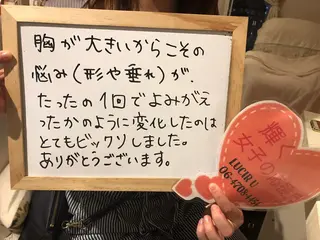 胸が大きいからこその
悩み(形や垂れ)が、
たったの1回でよみがえ
ったかのように変化したのは
とてもビックリしました。
ありがとうございます。
輝く
女子の
LUCIR U